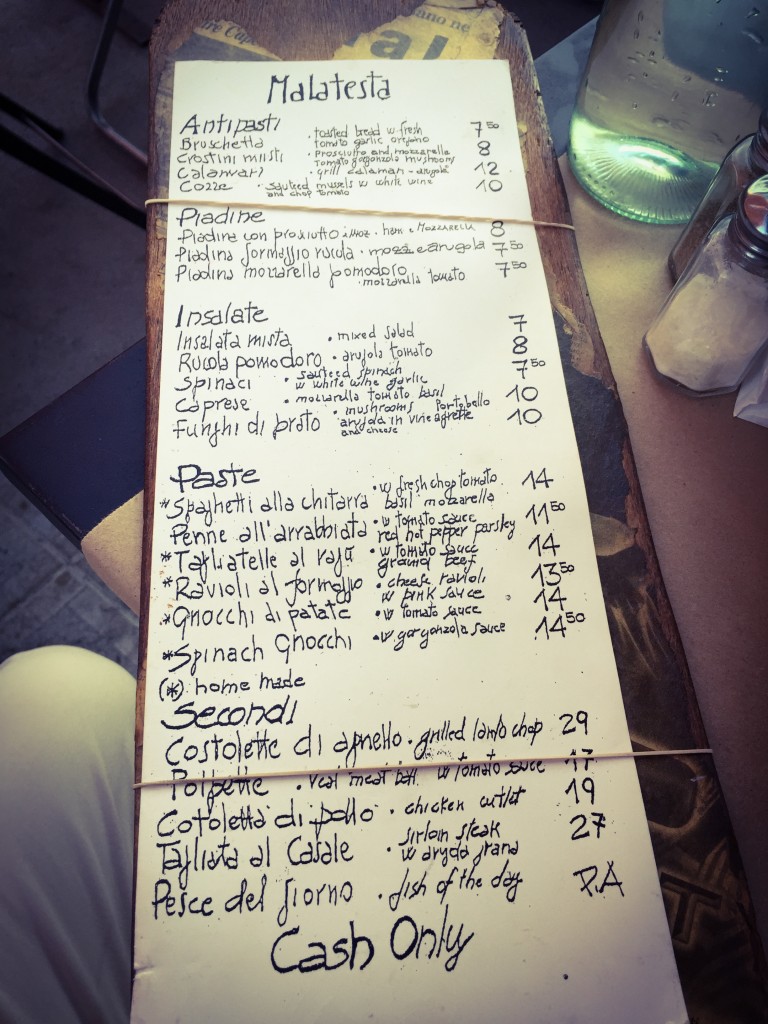 ano ne
al
Malatesta
Antipasti
Bruschetta . toasted bread w fresh 7 50
tomato garlic oregano
Crostini miisti . Prosciutto and mozzarella 8
Tomato gorgonzola mushrooms
Calamari . grill calamari - arugola 12
Cozze . sauteed mussels w white wine 10
and chop tomato
Piadine
Piadina con prosiutto i moz. ham e Mozzarella 8
Piadina formaggio rucola . mozz e arugola 7 50
Piadina mozzarella pomodoro 7 50
. mozzarella tomato
Insalate
Insalata mista . mixed salad 7
Rucola pomodoro . arugola tomato 8
Spinaci . sauteed spinach 7 50
w white wine garlic
Caprese . mozzarella tomato basil 10
Funghi di prato . mushrooms Portobello 10
arugola in vinegrette
and cheese
Paste
*Spaghetti alla chitarra . w fresh chop tomato 14
basil mozzarella
Penne all'arrabbiata . w tomato sauce 11 50
red hot pepper parsley
*Tagliatelle al ragu . w tomato sauce 14
ground beef
*Ravioli al formaggio . cheese ravioli 13 50
w pink sauce
*Gnocchi di patate . w tomato sauce 14
*Spinach Gnocchi . w gorgonzola sauce 14 50
(*) home made
Secondi
Costolette di agnello . grilled lamb chop 29
Polpette . veal meat ball w tomato sauce 17
Cotoletta di pollo . chicken cutlet 19
Tagliata al Casale . sirloin steak 27
w arugola grana
Pesce del giorno . fish of the day P.A
Cash Only